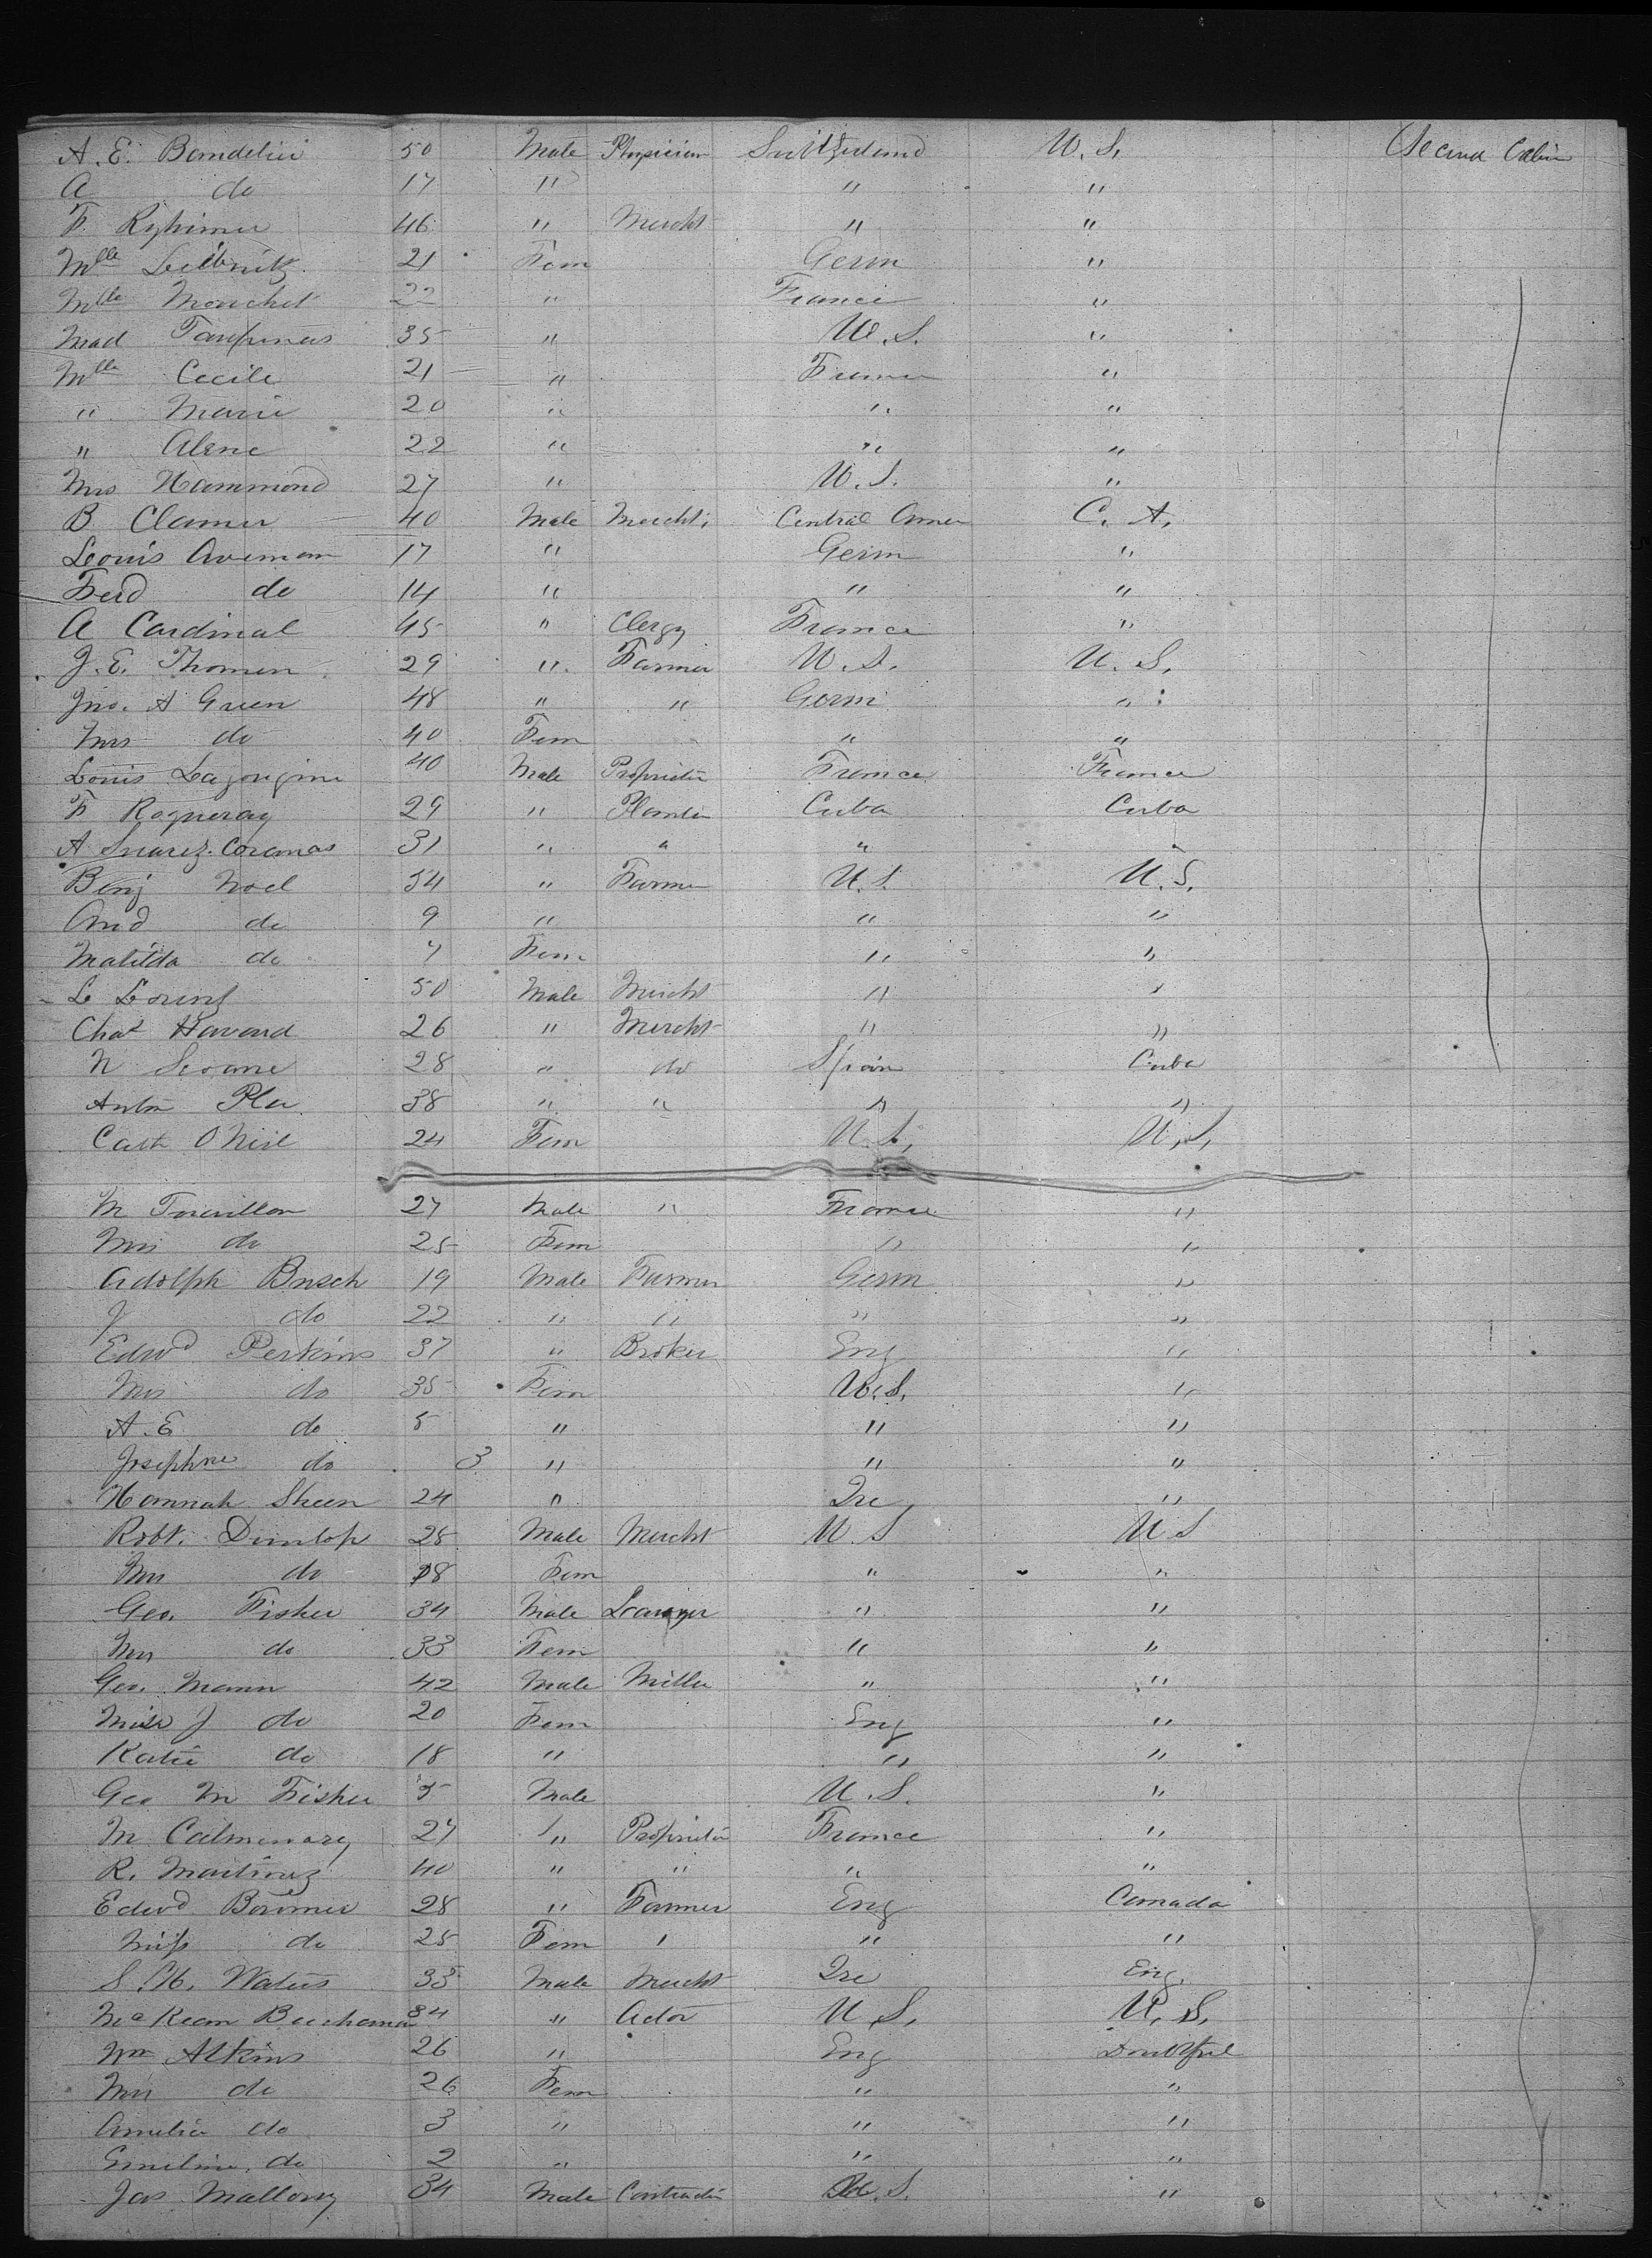 A. E. Bandelier 50 Male Physician Switzerland U. S. Second Cabin
A do 17 " " "
F. Ryhiner 46 " Mercht " "
Mlle Leibnitz 21 Fem Germ "
Mlle Monchet 22 " France "
Mad 35 " U. S. "
Mlle Cecile 21 " France "
" Marie 20 " " "
" Alene 22 " " "
Mrs Hammond 27 " U. S. "
B Clamer 40 Male Mercht Central Amer C. A.
Louis Aveman 17 " Germ "
Ferd do 14 " " "
A Cardinal 45 " Clergy France "
J. E. Thomen 29 " Farmer U. S. U. S.
Jno. A Green 48 " " Germ "
Mrs do 40 Fem " "
Louis 40 Male Proprietor France France
F Rogueray 29 " Planter Cuba Cuba
A Suarez 31 " " " "
Benj Noel 34 " Farmer U. S. U. S.
And do 9 " " "
Matilda do 7 Fem " "
L 50 Male Mercht " "
Chas Havard 26 " Mercht " "
N Seoane 28 " do Spain Cuba
Anton Pla 38 " " " "
Cath O'Neil 24 Fem U. S. U. S.
M 27 Male " France "
Mrs do 25 Fem " "
Adolph Busch 19 Male Farmer Germ "
J do 22 " " " "
Edwd Perkins 37 " Broker Eng "
Mrs do 35 Fem U. S. "
A. E. do 5 " " "
Josephine do 3 " " "
Hannah Sheen 24 " Ire "
Robt. Dunlop 28 Male Mercht U. S U S
Mrs do 18 Fem " "
Geo. Fisher 34 Male Lawyer " "
Mrs do 33 Fem " "
Geo. Mann 42 Male Miller " "
Miss J do 20 Fem Eng "
Katie do 18 " " "
Geo M Fisher 5 Male U. S. "
M 27 " Proprietor France "
R. Martinez 40 " " " "
Edwd 28 " Farmer Eng Canada
Miss do 25 Fem " " "
S. H. Waters 33 Male Mercht Ire Eng.
McKean Buchanan 34 " Actor U S. U. S.
Wm Atkins 26 " Eng Doubtful
Mrs do 26 Fem " "
Amelia do 3 " " "
Emeline do 2 " " "
Jas Mallory 34 Male Contractor U. S. "